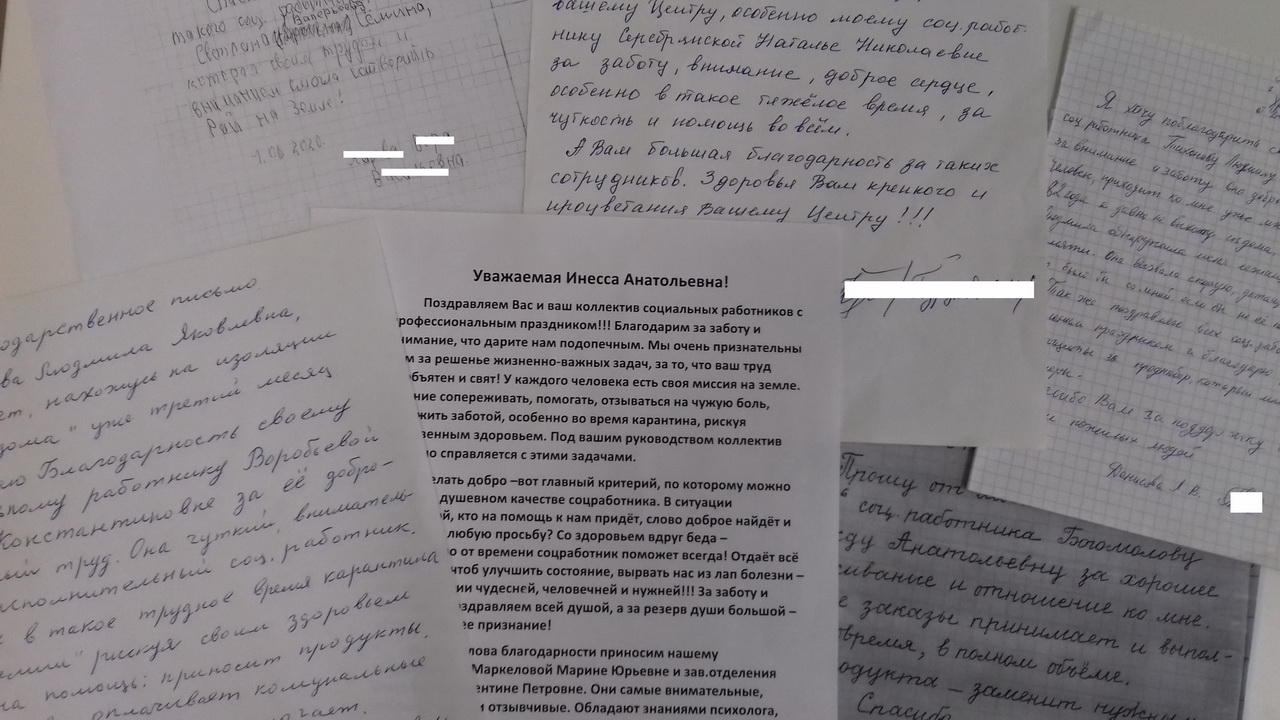 такого соц. работника
Светлана Семина,
которая своим трудом и
вниманием смогла сотворить
Рай на Земле!
1.06 2020.
вашему Центру, особенно моему соц. работ
нику Серебрянской Наталье Николаевне
за заботу, внимание, доброе сердце,
особенно в такое тяжёлое время, за
чуткость и помощь во всём.
А Вам большая благодарность за таких
сотрудников. Здоровья Вам крепкого и
процветания Вашему Центру!!!
Я хочу поблагодарить
соц. работника Людмилу
за внимание и заботу. Она
человек, приходит ко мне уже
82 года я давно не выхожу из дома,
Людмила обнаружила меня
Она вызвала скорую,
был бы со мной если бы не её
Так же поздравляю всех соц.
праздником и благодарю
за продна­бор, который
Вам за поддержку
пожилых людей
Данисова Л В.
одарственное письмо
ва Людмила Яковлевна,
ет, нахожусь на изоляции
дома" уже третий месяц
Благодарность своему
работнику Воробьевой
Константиновне за её добро-
труд. Она чуткий, вниматель
исполнительный соц. работник.
в такое трудное время карантина
рискуя своим здоровьем
на помощь: приносит продукты,
оплачивает комунальные
Уважаемая Инесса Анатольевна!
Поздравляем Вас и ваш коллектив социальных работников с
рофессиональным праздником!!! Благодарим за заботу и
нимание, что дарите нам подопечным. Мы очень признательны
м за решенье жизненно-важных задач, за то, что ваш труд
объятен и свят! У каждого человека есть своя миссия на земле.
ние сопереживать, помогать, отзываться на чужую боль,
жить заботой, особенно во время карантина, рискуя
венным здоровьем. Под вашим руководством коллектив
но справляется с этими задачами.
елать добро –вот главный критерий, по которому можно
душевном качестве соцработника. В ситуации
й, кто на помощь к нам придёт, слово доброе найдёт и
любую просьбу? Со здоровьем вдруг беда –
о от времени соцработник поможет всегда! Отдаёт всё
чтоб улучшить состояние, вырвать нас из лап болезни –
ии чудесней, человечней и нужней!!! За заботу и
здравляем всей душой, а за резерв души большой –
ее признание!
лова благодарности приносим нашему
Маркеловой Марине Юрьевне и зав.отделения
ентине Петровне. Они самые внимательные,
и отзывчивые. Обладают знаниями психолога,
Прошу от
соц. работника Богомолову
Анатольевну за хорошее
и отношение ко мне.
заказы принимает и выпол-
время, в полном объёме.
одукта – заменит
Спасибо